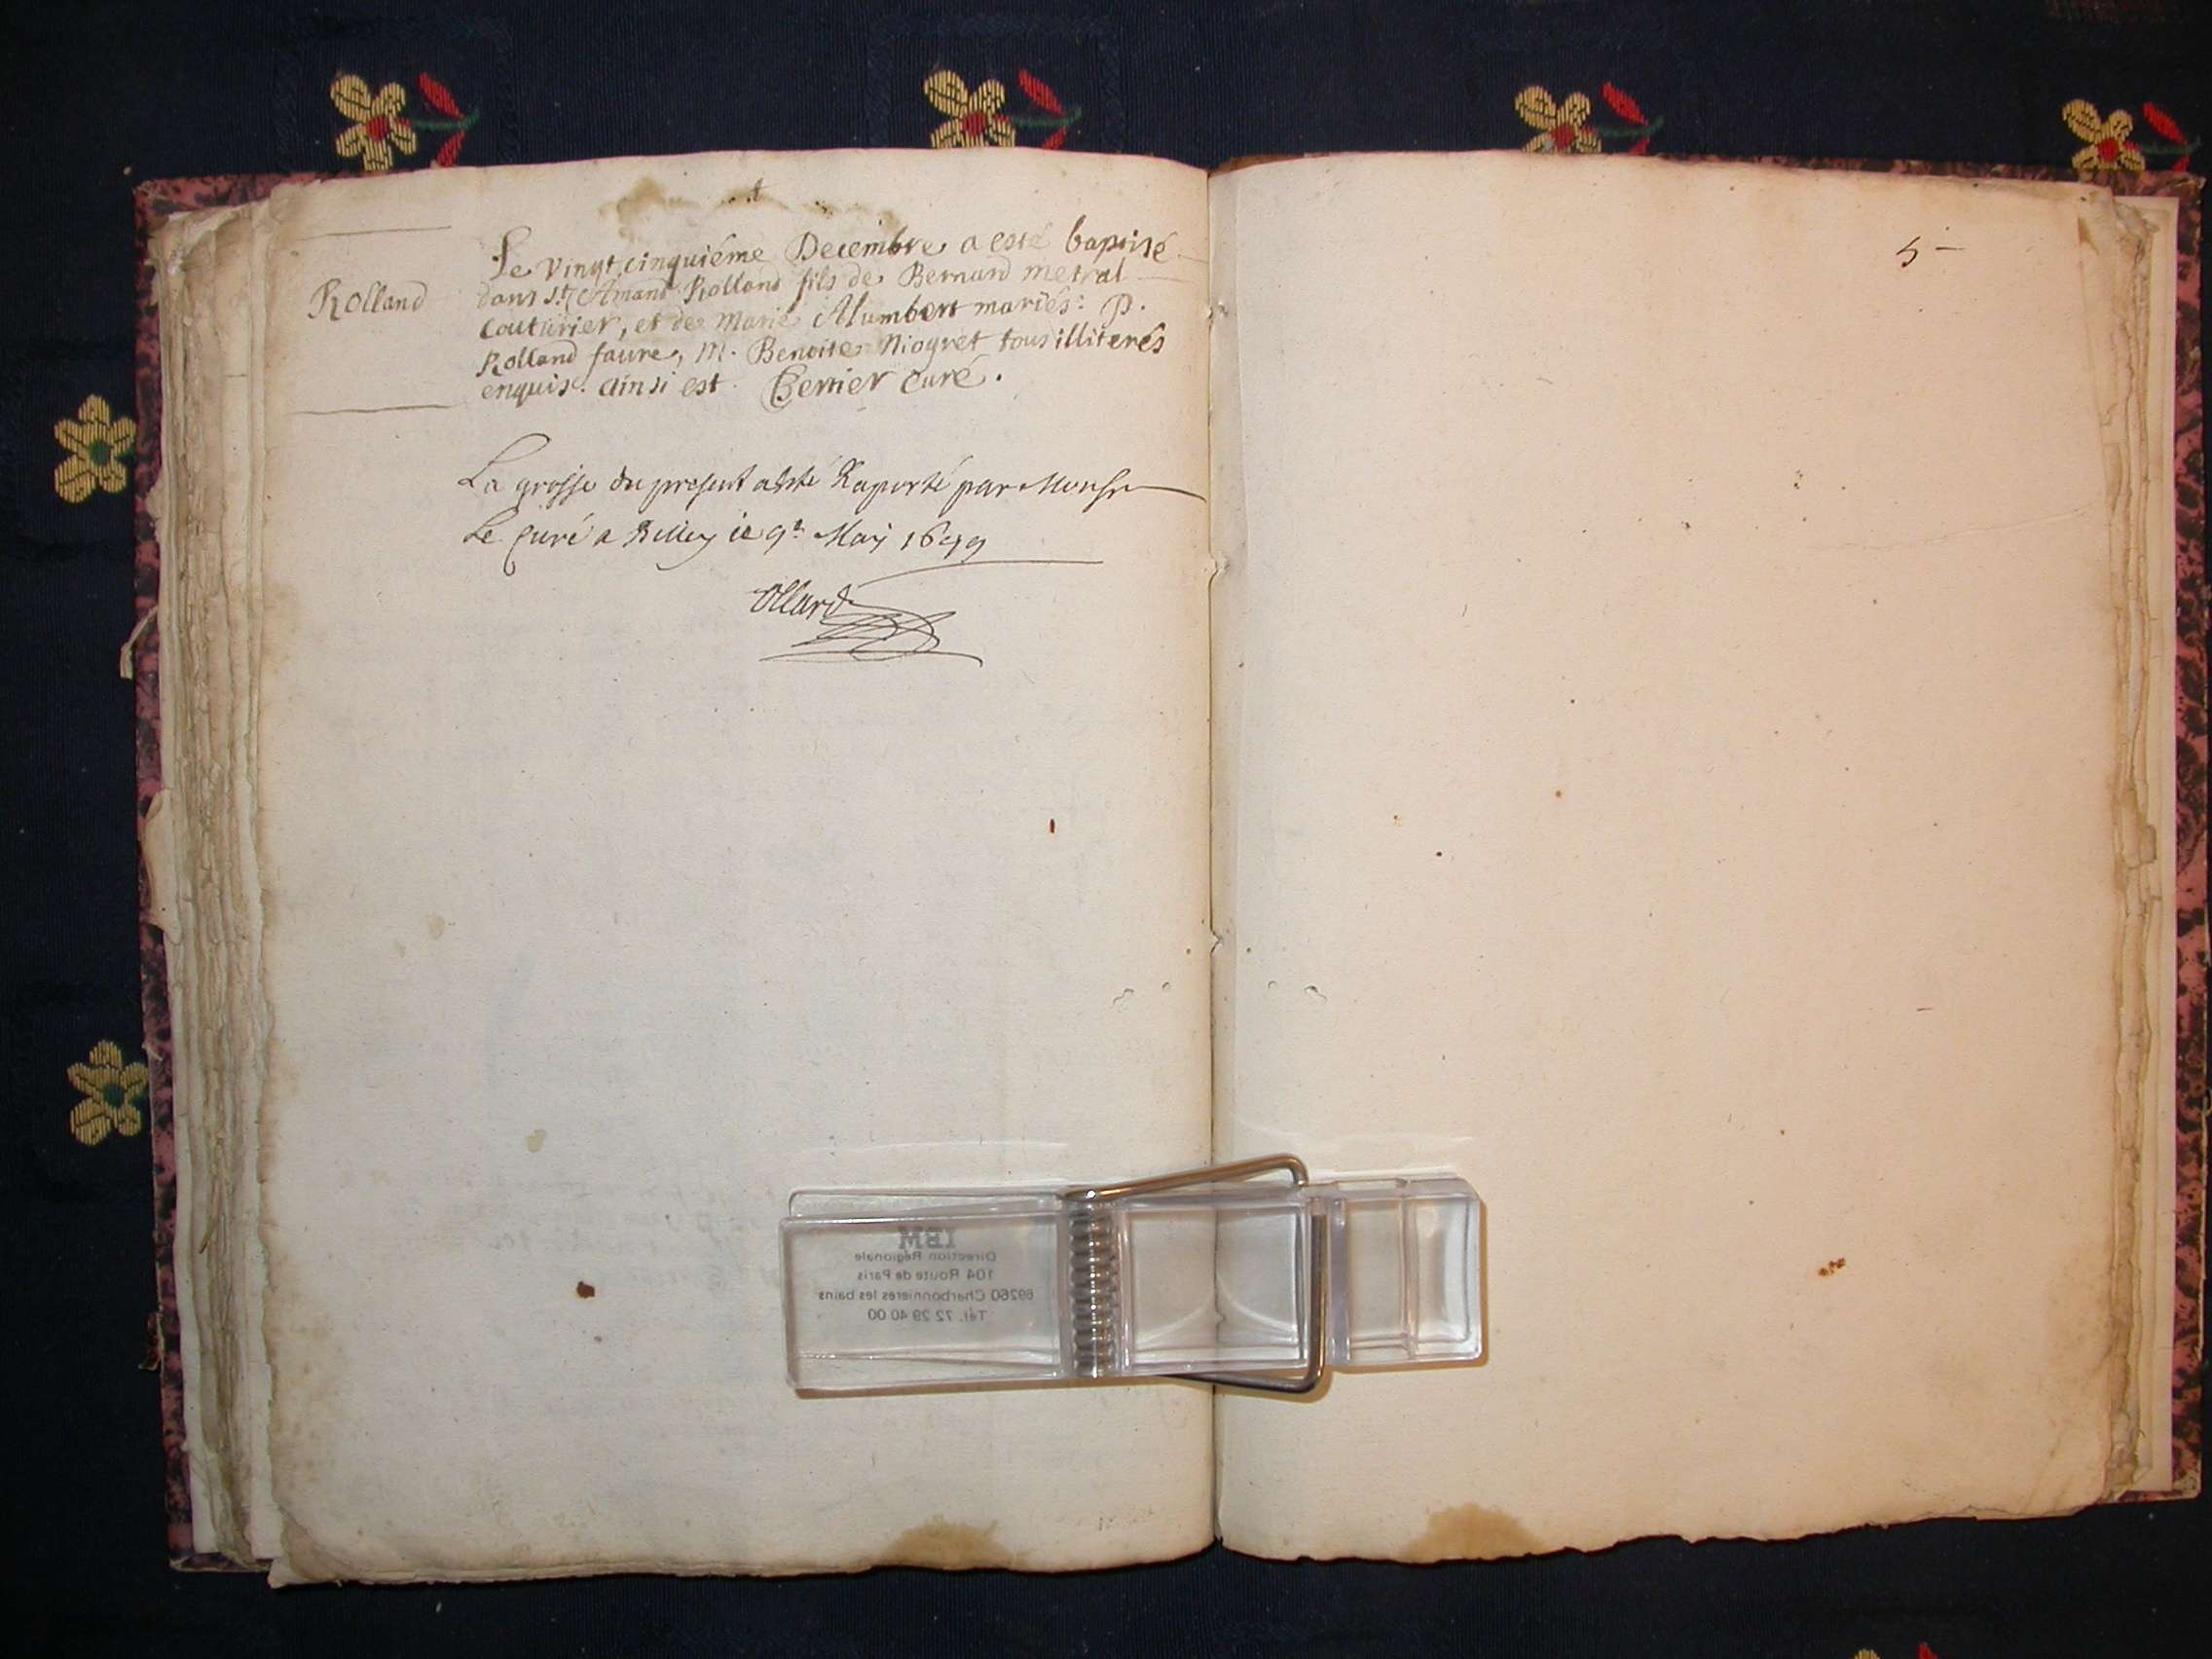 Rolland
Le vingt cinquiéme Decembre a esté baptisé
dans st Amand Rolland fils de Bernard metral
couturier, et de Marie Alumbert mariés: P.
Rolland faure, M. Benoite Niogret tous illiterés
enquis. ainsi est. Perrier Curé.
La grosse du present a esté Raporté par Monsr
Le Curé a Belley le 9e May 1699
Ollard
5
IBM
Direction Régionale
104 Route de Paris
69260 Charbonnieres les bains
Tél. 72 29 40 00